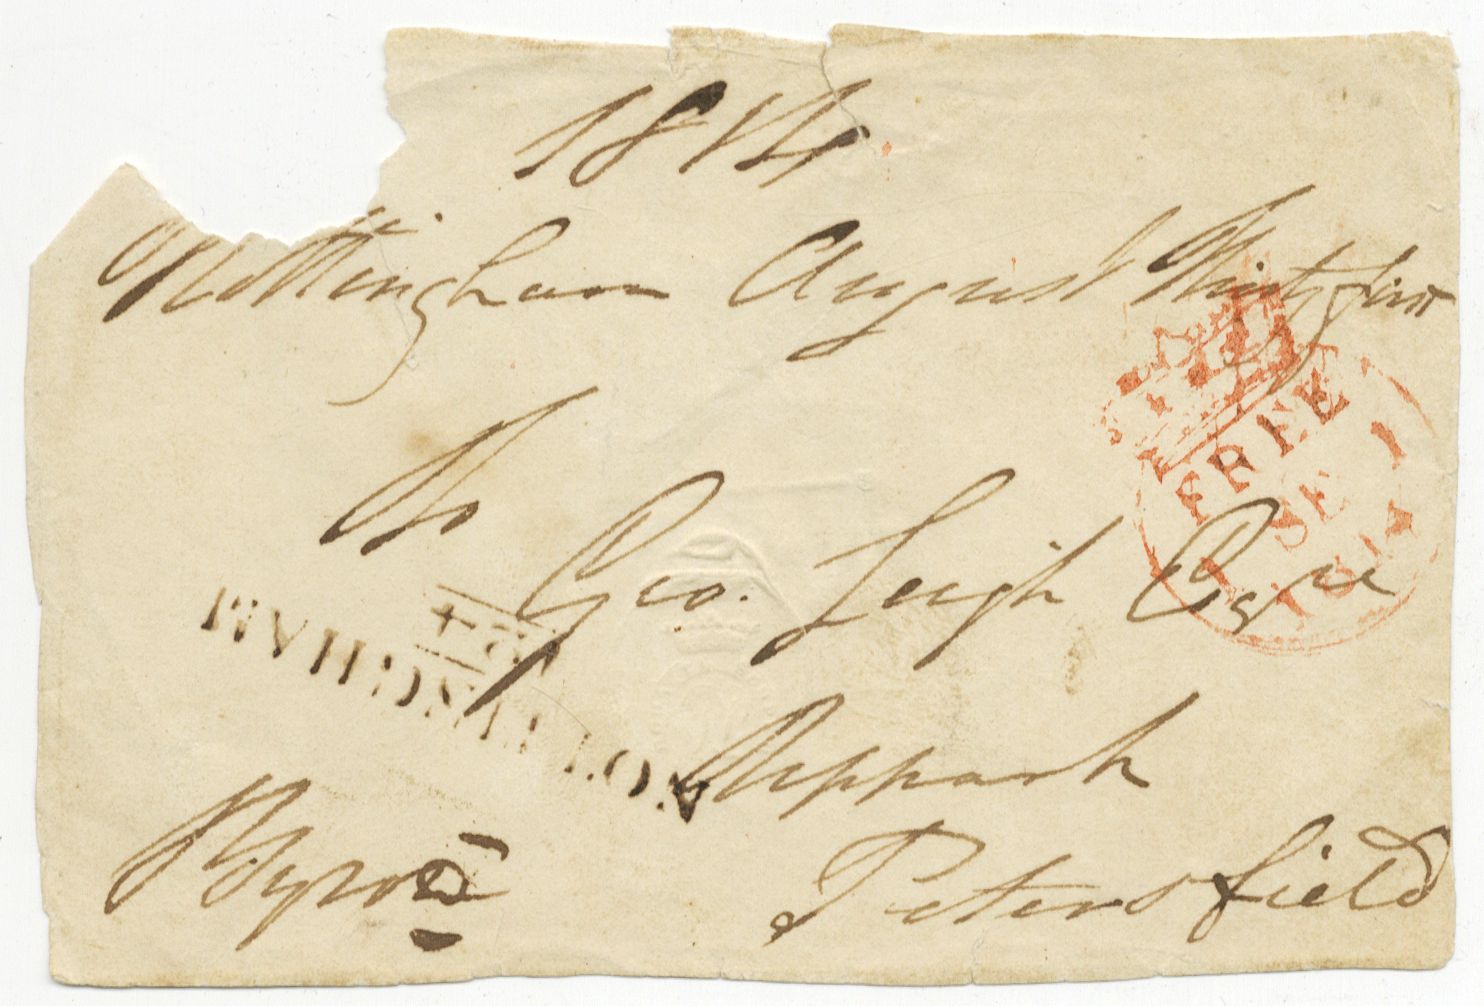 1814
Nottingham August Thirty first
To
Geo. Leigh Esqre
Uppark
Petersfield
Byron
NOTTINGHAM
FREE
1 SE 1
1814